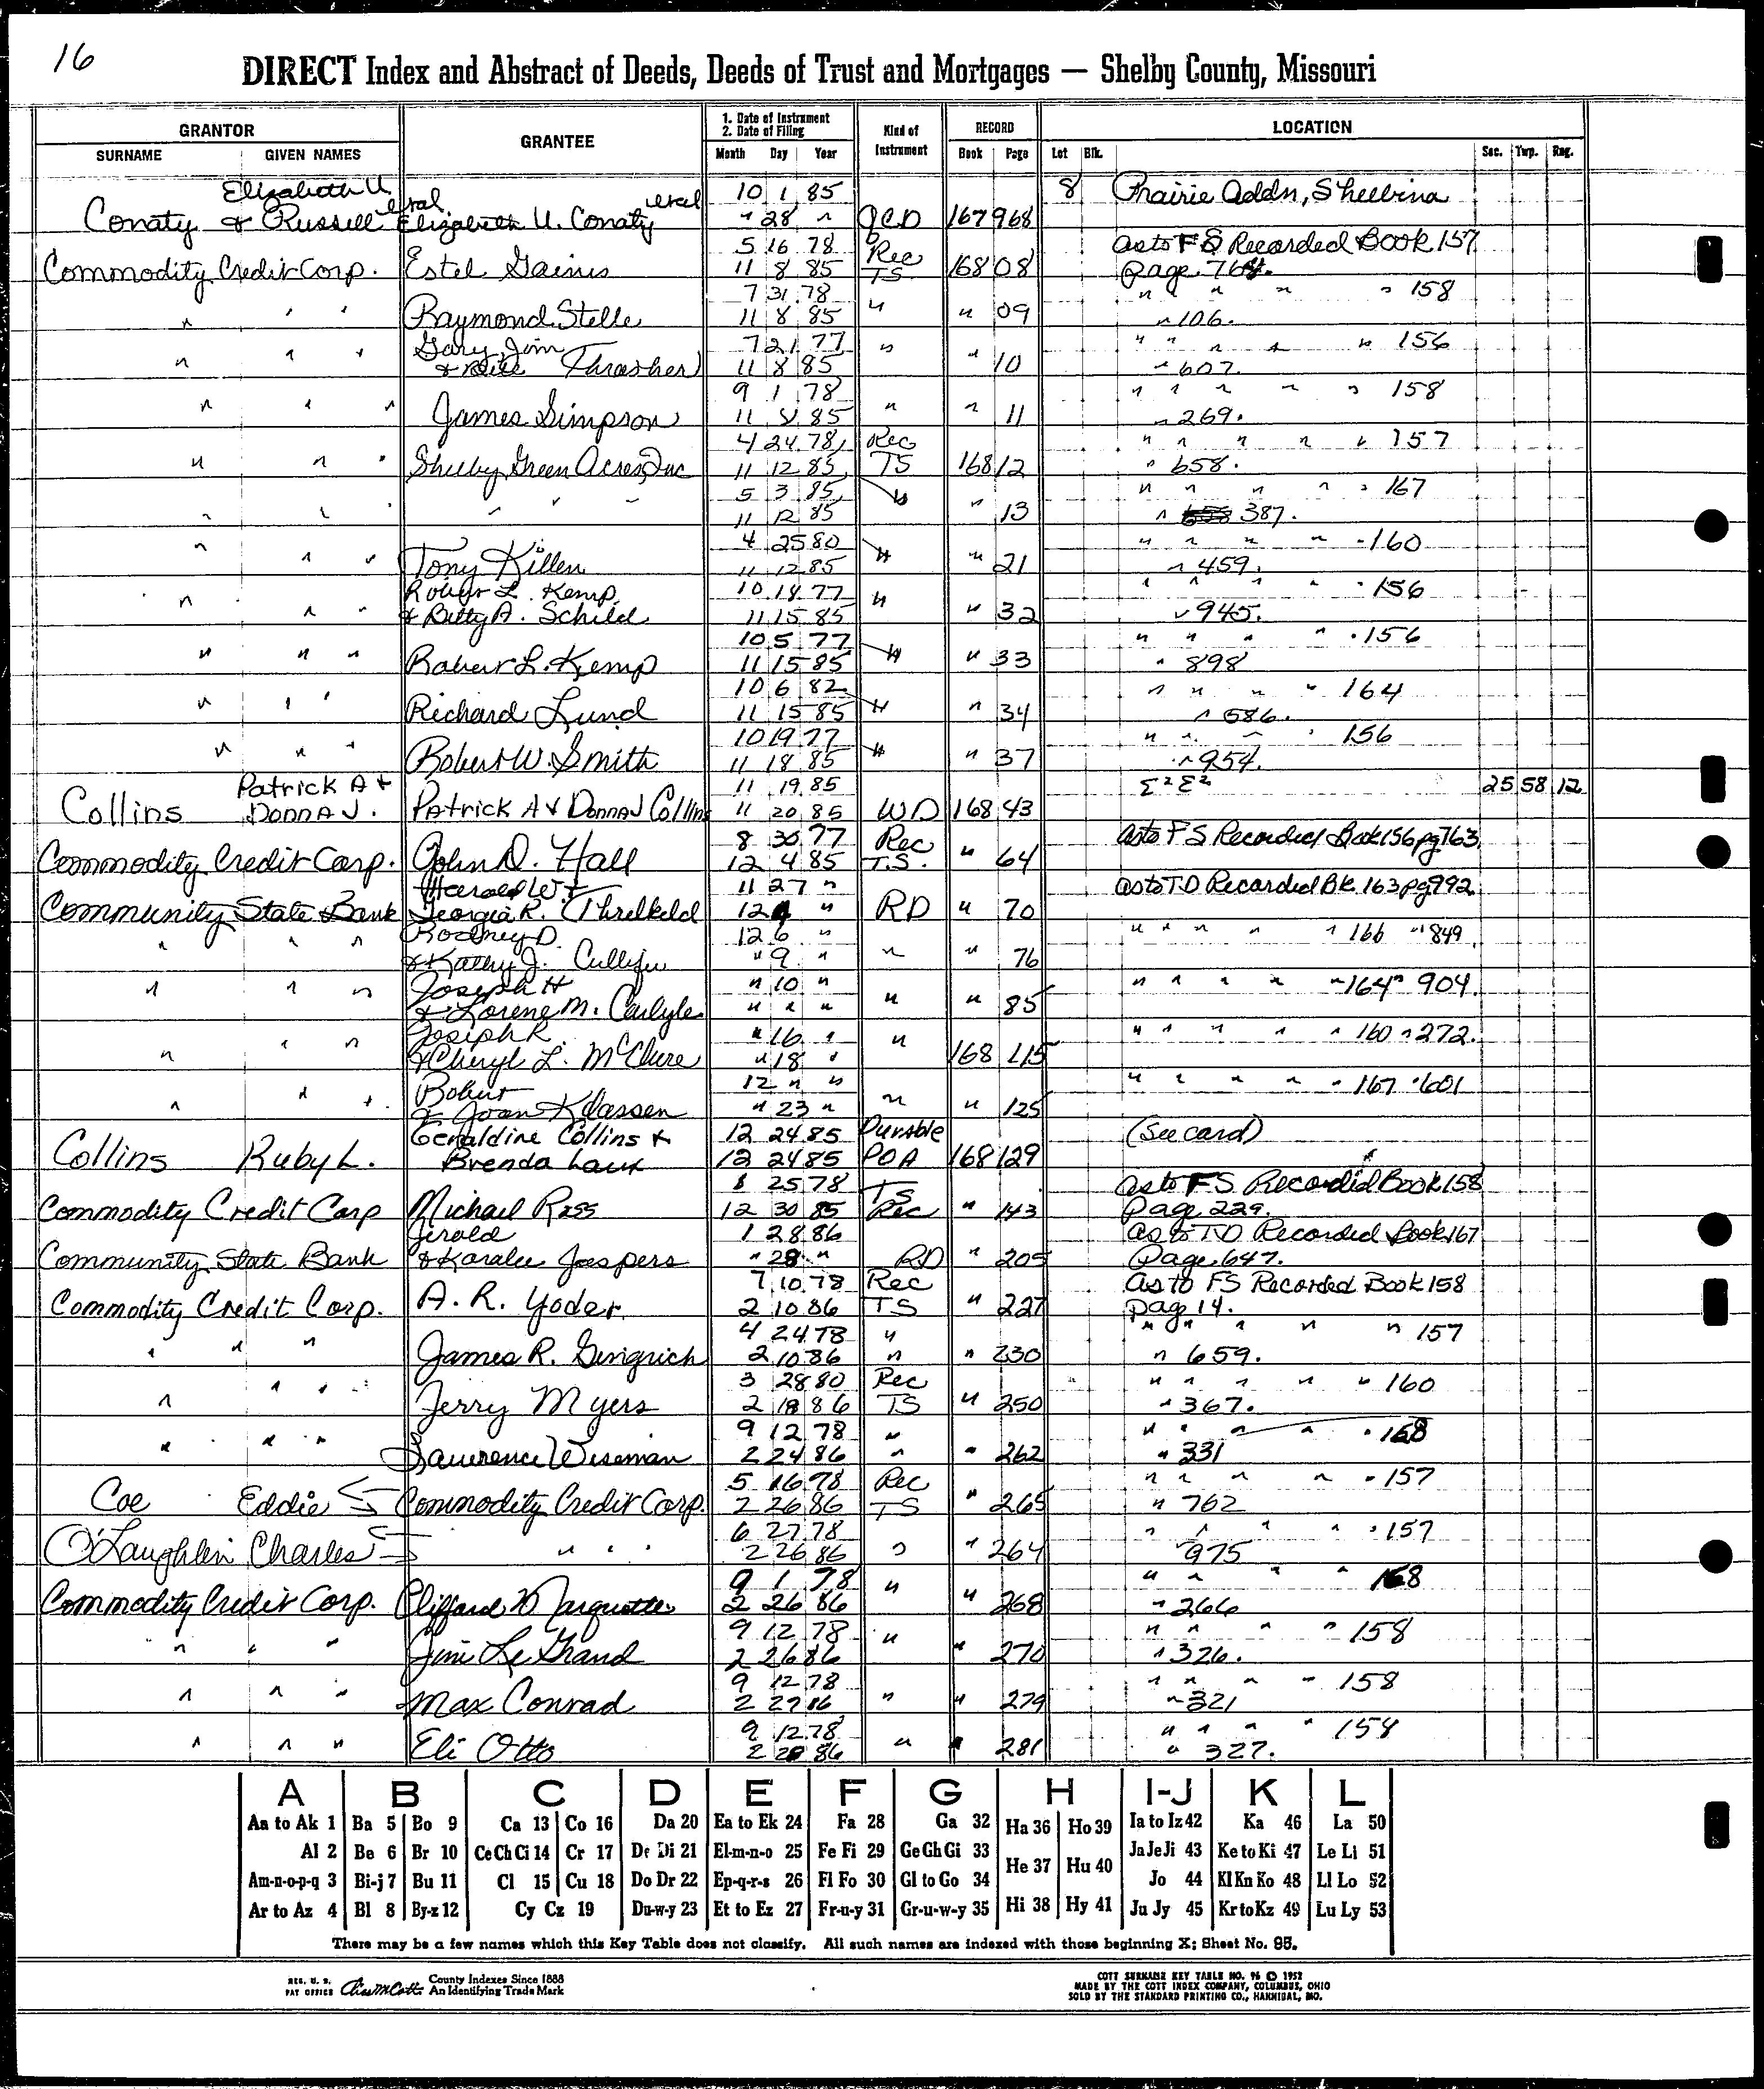 16
DIRECT Index and Abstract of Deeds, Deeds of Trust and Mortgages — Shelby County, Missouri
GRANTOR GRANTEE 1. Date of Instrument 2. Date of Filing Kind of Instrument RECORD LOCATION
SURNAME GIVEN NAMES Month Day Year Book Page Lot Blk. Sec. Twp. Rng.
Elizabeth U. etal etal 10 1 85 8 Prairie Addn, Shelbina
Conaty & Russell Elizabeth U. Conaty " 28 " QCD 167 968
5 16 78 Rec as to FS Recorded Book 157
Commodity Credit Corp. Estel Gaines 11 8 85 TS 168 08 Page 764.
7 31 78 " " " " 158
" " " Raymond Stelle 11 8 85 " " 09 " 106.
Gary, Jim 7 21 77 " " " " " 156
" " " & Thrasher 11 8 85 " " 10 " 607.
9 1 78 " " " " " 158
" " " James Simpson 11 8 85 " " 11 " 269.
4 24 78 Rec " " " " " 157
" " " Shelby Green Acres, Inc 11 12 85 TS 168 12 " 658.
5 3 85 " " " " " 167
" " " " " 11 12 85 " " 13 " 387.
4 25 80 " " " " " 160
" " " Tony Killen 11 12 85 " " 21 " 459.
Robert L. Kemp 10 18 77 " " " " " 156
" " " & Betty A. Schild 11 15 85 " " 32 " 945.
10 5 77 " " " " " 156
" " " Robert L. Kemp 11 15 85 " " 33 " 898
10 6 82 " " " " " 164
" " " Richard Lund 11 15 85 " " 34 " 586.
10 19 77 " " " " 156
" " " Robert W. Smith 11 18 85 " " 37 " 954.
Patrick A & 11 19 85 E² E² 25 58 12
Collins Donna J. Patrick A & Donna J Collins 11 20 85 WD 168 43
8 30 77 Rec as to FS Recorded Book 156 pg 763
Commodity Credit Corp. John D. Hall 12 4 85 T.S. " 64
Harold W. & 11 27 " as to T.D Recorded Bk. 163 pg 992
Community State Bank Georgia R. Threlkeld 12 4 " RD " 70
Rodney D. 12 6 " " " " " " 166 " 849
" " " & Kathy J. " 9 " " " 76
Joseph H " 10 " " " " " " 164 " 904.
" " " & Lorene M. Carlyle " " " " " 85
Joseph R. " 16 " " " " " " 160 " 272.
" " " & Cheryl L. McClure " 18 " " 168 115
Robert 12 " " " " " " " 167 " 601
" " " & Joan Klassen " 23 " " " 125
Geraldine Collins & 12 24 85 Durable (See card)
Collins Ruby L. Brenda Laux 12 24 85 POA 168 129
8 25 78 TS as to FS Recorded Book 158
Commodity Credit Corp Michael Rass 12 30 85 Rec " 143 Page 229.
Jerold 1 28 86 as to TD Recorded Book 167
Community State Bank & Karalee Jaspers " 28 " RD " 205 Page 647.
7 10 78 Rec as to FS Recorded Book 158
Commodity Credit Corp. A. R. Yoder 2 10 86 TS " 227 Page 14.
4 24 78 " " " " " " 157
" " " James R. Gingrich 2 10 86 " " 230 " 659.
3 28 80 Rec " " " " " 160
" " " Jerry Myers 2 18 86 TS " 250 " 367.
9 12 78 " " " " " 158
" " " Lawrence Wiseman 2 24 86 " " 262 " 331
5 16 78 Rec " " " " " 157
Coe Eddie Commodity Credit Corp. 2 26 86 TS " 265 " 762
6 27 78 " " " " " 157
O'Laughlin Charles " " " 2 26 86 " " 264 975
9 1 78 " " " " 158
Commodity Credit Corp. Clifford D Jarquette 2 26 86 " " 268 " 266
9 12 78 " " " " 158
" " " Jim Le Grand 2 26 86 " " 270 " 326.
9 12 78 " " " " 158
" " " Max Conrad 2 27 86 " " 279 " 321
9 12 78 " " " " 158
" " " Eli Otto 2 28 86 " " 281 " 327.
A B C D E F G H I-J K L
Aa to Ak 1 Ba 5 Bo 9 Ca 13 Co 16 Da 20 Ea to Ek 24 Fa 28 Ga 32 Ha 36 Ho 39 Ia to Iz 42 Ka 46 La 50
Al 2 Be 6 Br 10 Ce Ch Ci 14 Cr 17 De Di 21 El-m-n-o 25 Fe Fi 29 Ge Gh Gi 33 He 37 Hu 40 Ja Je Ji 43 Ke to Ki 47 Le Li 51
Am-n-o-p-q 3 Bi-j 7 Bu 11 Cl 15 Cu 18 Do Dr 22 Ep-q-r-s 26 Fl Fo 30 Gl to Go 34 Jo 44 Kl Kn Ko 48 Ll Lo 52
Ar to Az 4 Bl 8 By-z 12 Cy Cz 19 Du-w-y 23 Et to Ez 27 Fr-u-y 31 Gr-u-w-y 35 Hi 38 Hy 41 Ju Jy 45 Kr to Kz 49 Lu Ly 53
There may be a few names which this Key Table does not classify. All such names are indexed with those beginning X; Sheet No. 95.
REG. U. S. PAT OFFICE County Indexes Since 1888 An Identifying Trade Mark
COTT SURNAME KEY TABLE NO. 96 © 1952
MADE BY THE COTT INDEX COMPANY, COLUMBUS, OHIO
SOLD BY THE STANDARD PRINTING CO., HANNIBAL, MO.